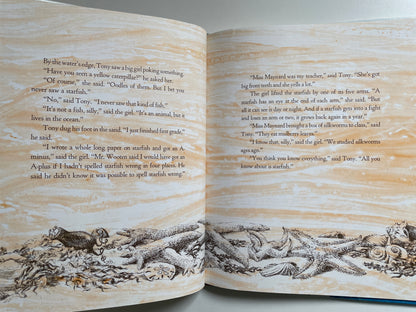 By the water's edge, Tony saw a big girl poking something.
"Have you seen a yellow caterpillar?" he asked her.
"Of course," she said. "Oodles of them. But I bet you
never saw a starfish."
"No," said Tony. "I never saw that kind of fish."
"It's not a fish, silly," said the girl. "It's an animal, but it
lives in the ocean."
Tony dug his foot in the sand. "I just finished first grade,"
he said.
"I wrote a whole paper on starfish and got an A-
minus," said the girl. "Mr. Wooten said I would have got an
A-plus if I hadn't spelled starfish wrong in four places. He
said he didn't know it was possible to spell starfish wrong."
"Miss Maynard was my teacher," said Tony. "She's got
big front teeth and she yells a lot."
The girl lifted the starfish by one of its five arms. "A
starfish has an eye at the end of each arm," she said. "But
all it can see is day or night. And if a starfish gets into a fight
and loses an arm or two, it grows back again in a year."
"Miss Maynard brought a box of silkworms to class,"
said Tony. "They eat mulberry leaves."
"I know that, silly," said the girl. "We studied silkworms
ages ago."
"You think you know everything," said Tony. "All you
know about is starfish."